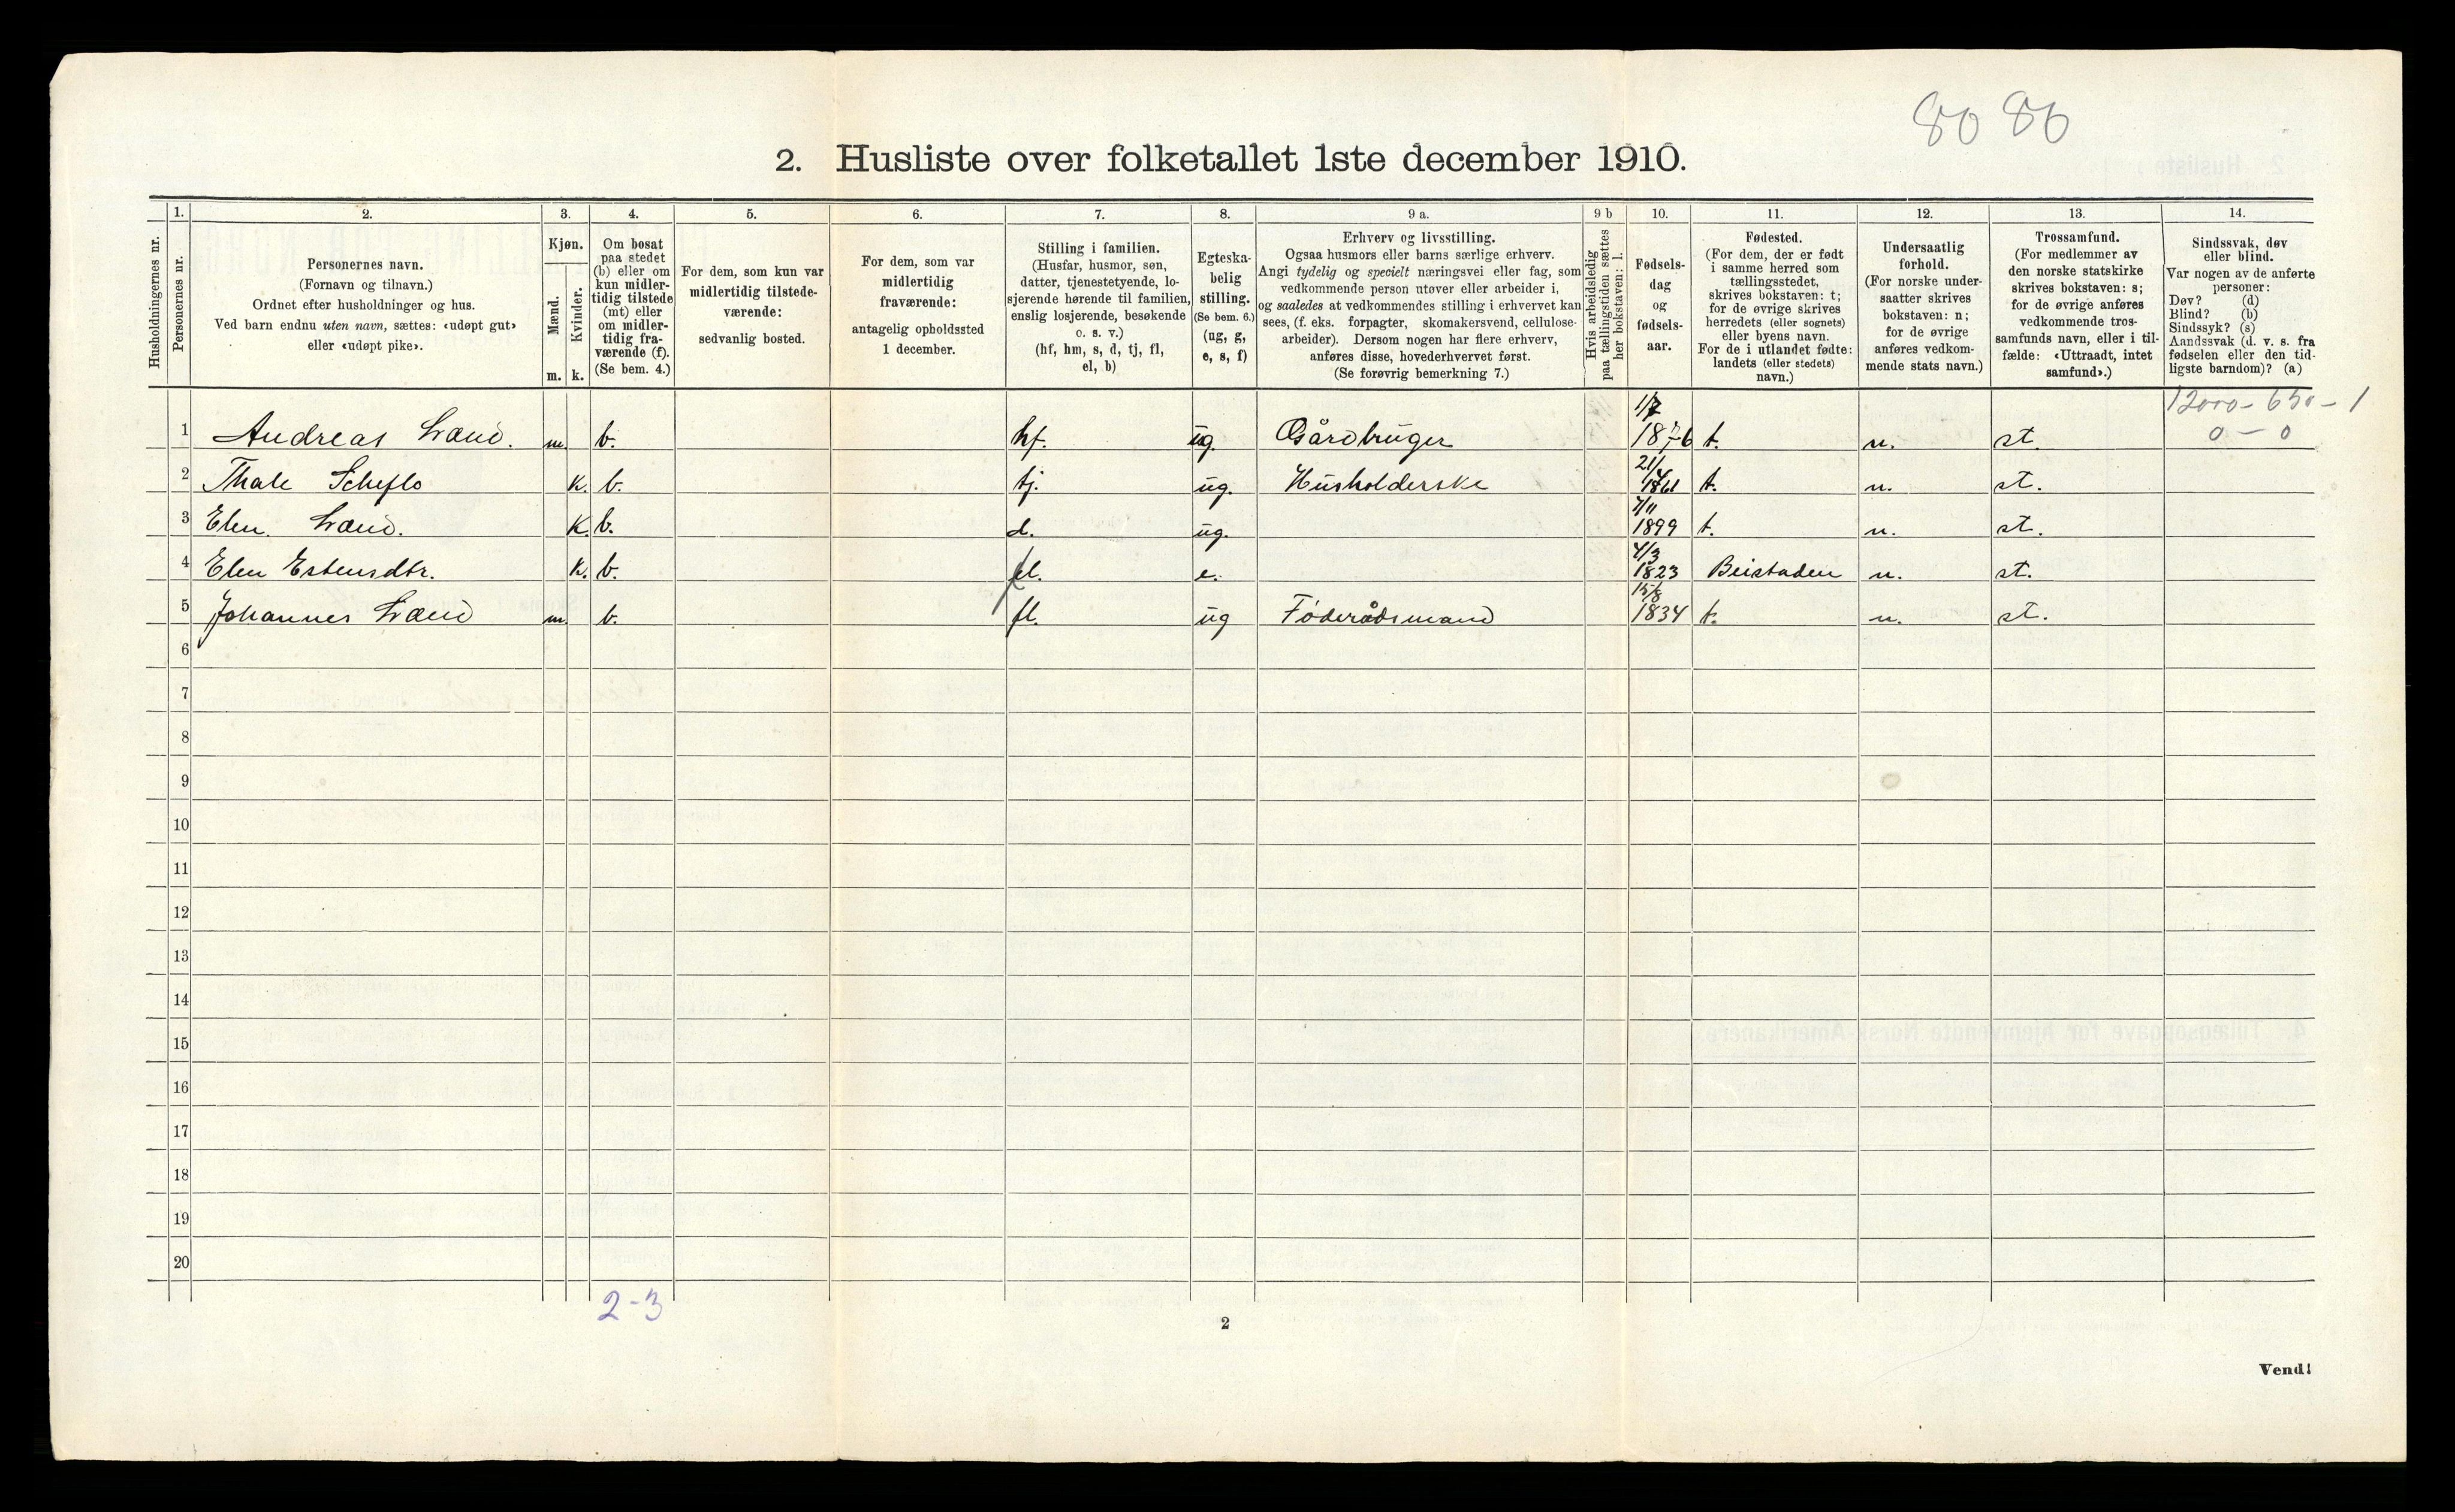 80 86
2. Husliste over folketallet 1ste december 1910.
Husholdningernes nr.
1.
Personernes nr.
2.
Personernes navn.
(Fornavn og tilnavn.)
Ordnet efter husholdninger og hus.
Ved barn endnu uten navn, sættes: «udøpt gut»
eller «udøpt pike».
3.
Kjøn.
Mænd.
Kvinder.
m. k.
4.
Om bosat
paa stedet
(b) eller om
kun midler-
tidig tilstede
(mt) eller
om midler-
tidig fra-
værende (f).
(Se bem. 4.)
5.
For dem, som kun var
midlertidig tilstede-
værende:
sedvanlig bosted.
6.
For dem, som var
midlertidig
fraværende:
antagelig opholdssted
1 december.
7.
Stilling i familien.
(Husfar, husmor, søn,
datter, tjenestetyende, lo-
sjerende hørende til familien,
enslig losjerende, besøkende
o. s. v.)
(hf, hm, s, d, tj, fl,
el, b)
8.
Egteska-
belig
stilling.
(Se bem. 6.)
(ug, g,
e, s, f)
9 a.
Erhverv og livsstilling.
Ogsaa husmors eller barns særlige erhverv.
Angi tydelig og specielt næringsvei eller fag, som
vedkommende person utøver eller arbeider i,
og saaledes at vedkommendes stilling i erhvervet kan
sees, (f. eks. forpagter, skomakersvend, cellulose-
arbeider). Dersom nogen har flere erhverv,
anføres disse, hovederhvervet først.
(Se forøvrig bemerkning 7.)
9 b
Hvis arbeidsledig
paa tællingstiden sættes
her bokstaven: l.
10.
Fødsels-
dag
og
fødsels-
aar.
11.
Fødested.
(For dem, der er født
i samme herred som
tællingsstedet,
skrives bokstaven: t;
for de øvrige skrives
herredets (eller sognets)
eller byens navn.
For de i utlandet fødte:
landets (eller stedets)
navn.)
12.
Undersaatlig
forhold.
(For norske under-
saatter skrives
bokstaven: n;
for de øvrige
anføres vedkom-
mende stats navn.)
13.
Trossamfund.
(For medlemmer av
den norske statskirke
skrives bokstaven: s;
for de øvrige anføres
vedkommende tros-
samfunds navn, eller i til-
fælde: «Uttraadt, intet
samfund».)
14.
Sindssvak, døv
eller blind.
Var nogen av de anførte
personer:
Døv? (d)
Blind? (b)
Sindssyk? (s)
Aandssvak (d. v. s. fra
fødselen eller den tid-
ligste barndom)? (a)
12000 - 650 - 1
0 - 0
1 Andreas Land. m. b. hf. ug. Gårdbruger 1/7 1876 t. n. st.
2 Thale Scheflo k. b. tj. ug. Husholderske 21/4 1861 t. n. st.
3 Elen Land. k. b. d. ug. 7/11 1899 t. n. st.
4 Elen Estensdtr. k. b. fl. e. 4/3 1823 Beistaden n. st.
5 Johannes Land m. b. fl. ug Føderådsmand 15/8 1834 t. n. st.
6
7
8
9
10
11
12
13
14
15
16
17
18
19
20
2-3
2
Vend!